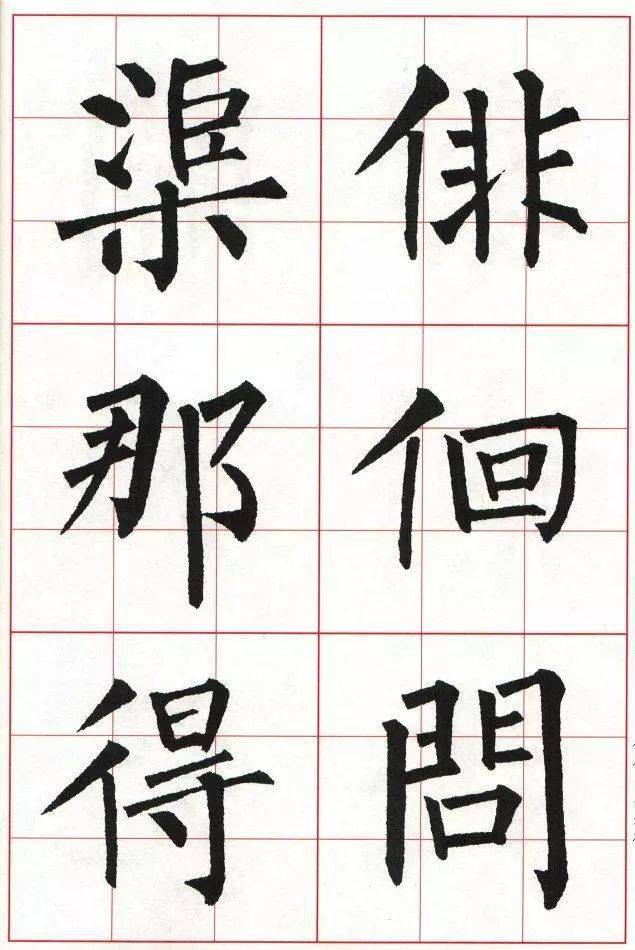 俳佪問
渠那得